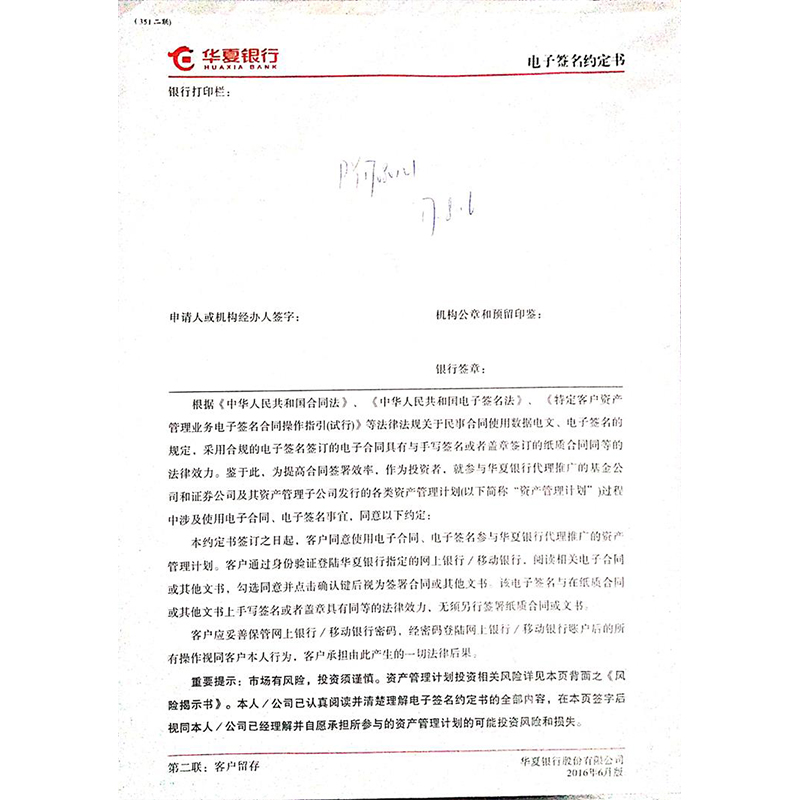 (351 二联)
华夏银行
HUAXIA BANK
电子签名约定书
银行打印栏：
17.8.6
申请人或机构经办人签字：
机构公章和预留印鉴：
银行签章：
根据《中华人民共和国合同法》、《中华人民共和国电子签名法》、《特定客户资产
管理业务电子签名合同操作指引(试行)》等法律法规关于民事合同使用数据电文、电子签名的
规定，采用合规的电子签名签订的电子合同具有与手写签名或者盖章签订的纸质合同同等的
法律效力。鉴于此，为提高合同签署效率，作为投资者，就参与华夏银行代理推广的基金公
司和证券公司及其资产管理子公司发行的各类资产管理计划(以下简称“资产管理计划”)过程
中涉及使用电子合同、电子签名事宜，同意以下约定：
本约定书签订之日起，客户同意使用电子合同、电子签名参与华夏银行代理推广的资产
管理计划。客户通过身份验证登陆华夏银行指定的网上银行/移动银行，阅读相关电子合同
或其他文书，勾选同意并点击确认键后视为签署合同或其他文书。该电子签名与在纸质合同
或其他文书上手写签名或者盖章具有同等的法律效力，无须另行签署纸质合同或文书。
客户应妥善保管网上银行/移动银行密码，经密码登陆网上银行/移动银行账户后的所
有操作视同客户本人行为，客户承担由此产生的一切法律后果。
重要提示：市场有风险，投资须谨慎。资产管理计划投资相关风险详见本页背面之《风
险揭示书》。本人/公司已认真阅读并清楚理解电子签名约定书的全部内容，在本页签字后
视同本人/公司已经理解并自愿承担所参与的资产管理计划的可能投资风险和损失。
第二联：客户留存
华夏银行股份有限公司
2016年6月版